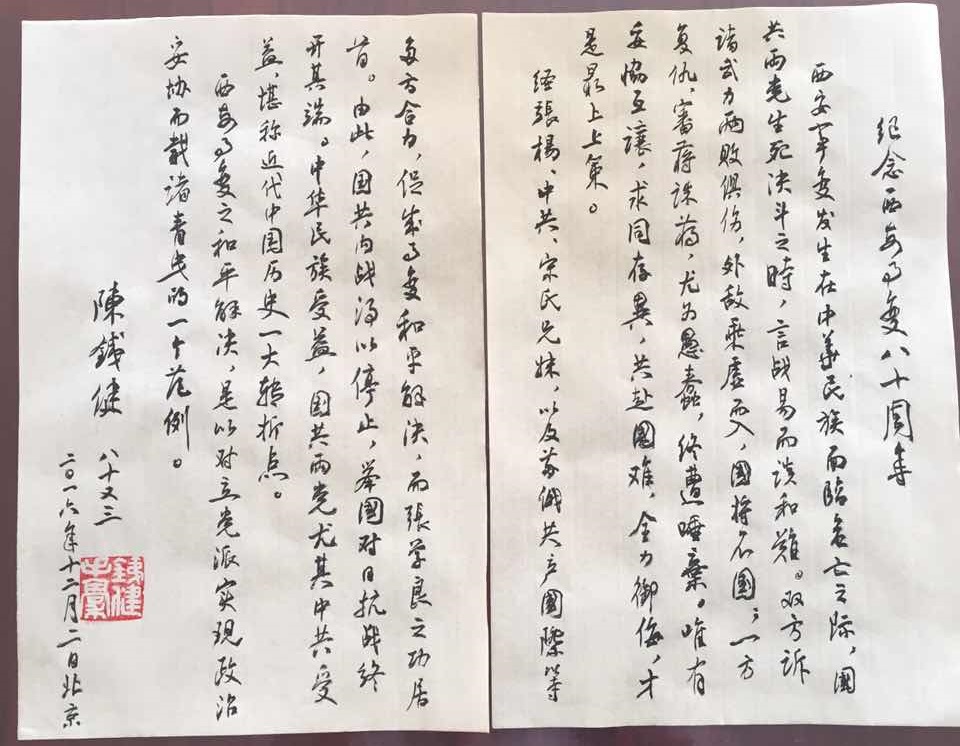 纪念西安事变八十周年
西安军变发生在中華民族面臨危亡之际，國
共两党生死决斗之時，言战易而谈和難。双方訴
诸武力两败俱伤，外敌乘虚而入，國将不國；一方
复仇，審蒋誅蒋，尤为愚蠢，终遭唾棄。唯有
妥協互讓，求同存異，共赴國难，全力御侮，才
是最上上策。
经張楊、中共、宋氏兄妹，以及苏俄共产國際等
多方合力，促成事变和平解决，而張学良之功居
首。由此，国共内战得以停止，举國对日抗战终
开其端。中华民族受益，國共两党尤其中共受
益，堪称近代中国历史一大转折点。
西安事变之和平解决，是以对立党派实现政治
妥协而载诸青史的一个范例。
陳鐵健 八十又三
二〇一六年十二月二日北京
鐵健